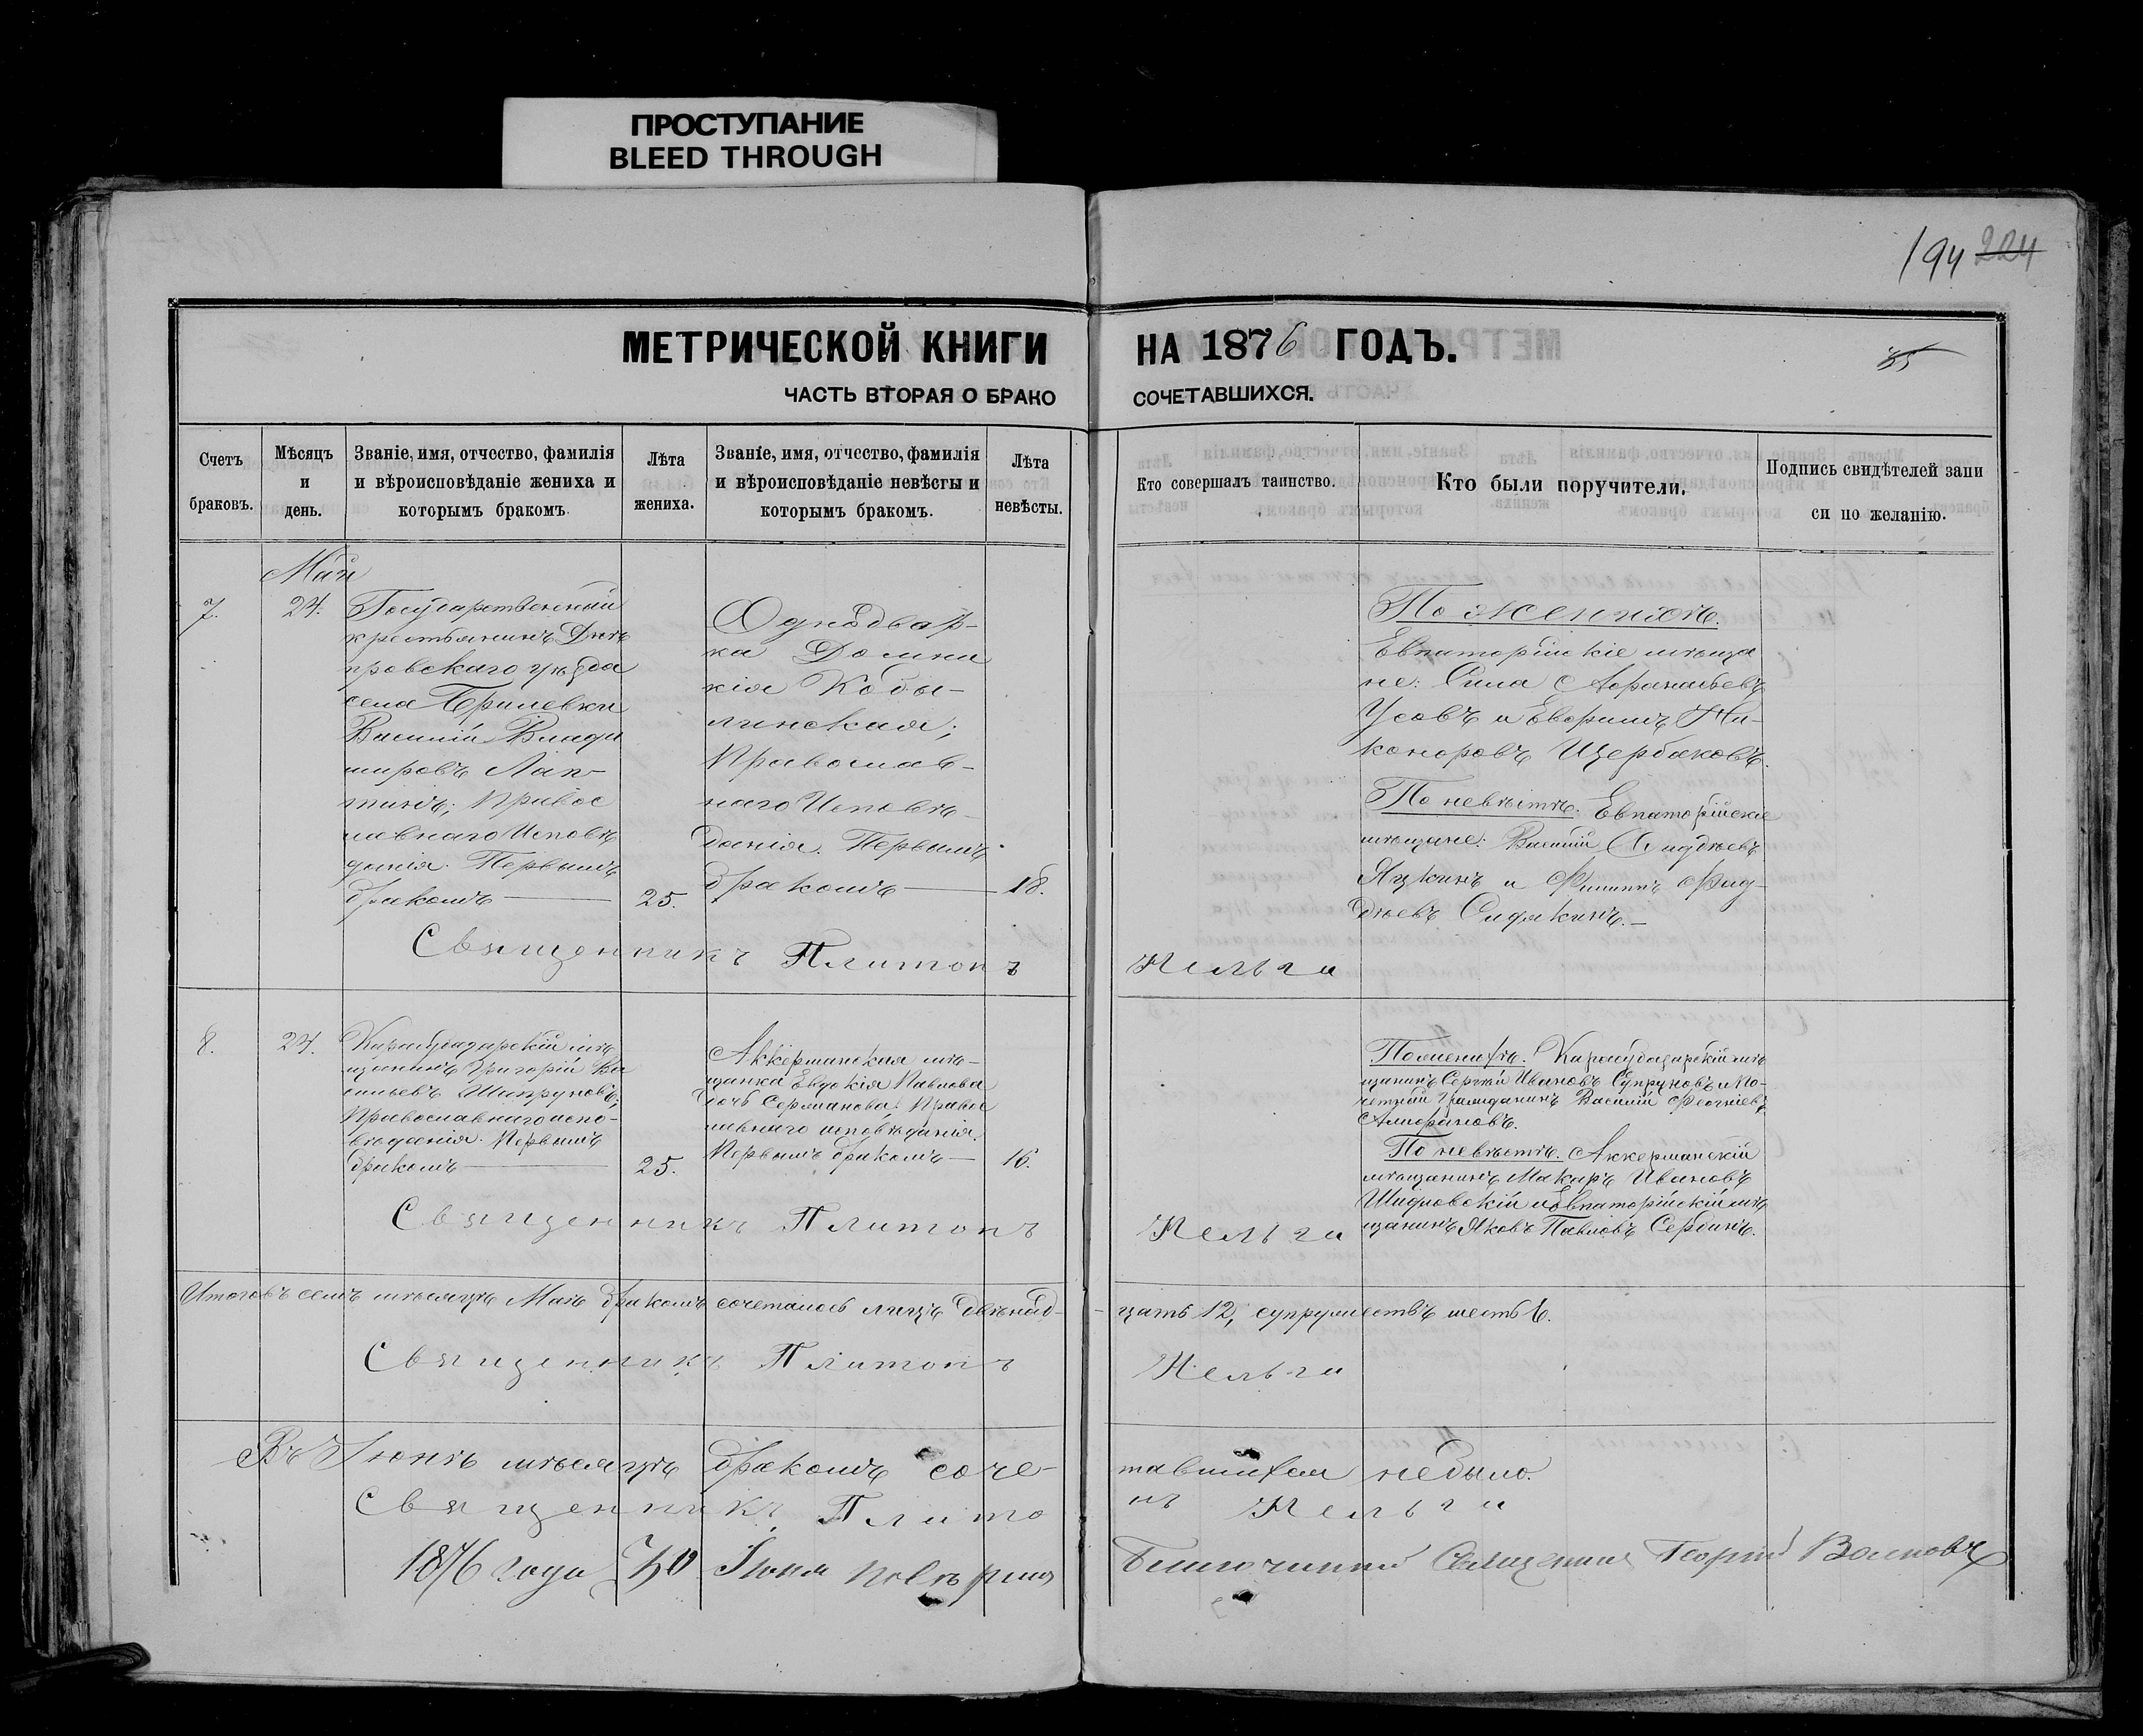 ПРОСТУПАНИЕ
BLEED THROUGH
194 224
МЕТРИЧЕСКОЙ КНИГИ НА 1876 ГОДЪ.
85
ЧАСТЬ ВТОРАЯ О БРАКО СОЧЕТАВШИХСЯ.
Счетъ браковъ.
Мѣсяцъ и день.
Званіе, имя, отчество, фамилія
и вѣроисповѣданіе жениха и
которымъ бракомъ.
Лѣта жениха.
Званіе, имя, отчество, фамилія
и вѣроисповѣданіе невѣсты и
которымъ бракомъ.
Лѣта невѣсты.
Кто совершалъ таинство.
Кто были поручители.
Подпись свидѣтелей запи
си по желанію.
7.
Май
24.
Государственный
крестьянинъ Днѣ
провскаго уѣзда
села Брилевки
Василій Влади
міровъ Лап-
тинъ; Правос
лавнаго Исповѣ
данія. Первымъ
бракомъ
25.
Однодвор-
ка Домни
кія Кобы-
линская;
Православ-
наго Исповѣ-
данія. Первымъ
бракомъ
18.
По женихѣ.
Евпаторійскіе мѣща
не: Сила Афанасьевъ
Усовъ и Евфимъ Ни-
коноровъ Щербаковъ.
По невѣстѣ. Евпаторійскіе
мѣщане: Василій
и Филиппъ Фад-
дѣевъ Сидякинъ.
Священникъ Платонъ
8.
24.
Карасубазарскій мѣ
щанинъ Григорій Ва
сильевъ
Православнаго испо-
вѣданія. Первымъ
бракомъ
25.
Аккерманская мѣ-
щанка Евдокія Павлова
дочь Серманова; Правос
лавнаго исповѣданія.
Первымъ бракомъ
16.
По женихѣ. Карасубазарскій мѣ
щанинъ Сергѣй Ивановъ Супруновъ и По-
четный Гражданинъ Василій
По невѣстѣ. Аккерманскій
мѣщанинъ Макаръ Ивановъ
и Евпаторійскій мѣ
щанинъ Яковъ Павловъ Сербинъ.
Священникъ Платонъ
Итого въ семъ мѣсяцѣ Маѣ бракомъ сочеталось лицъ двѣнад-цать 12, супружествъ шесть 6.
Священникъ Платонъ
Въ Іюнѣ мѣсяцѣ бракомъ соче-тавшихся небыло.
Священникъ Платонъ
1876 года 30 Іюня повѣрилъ Благочинный Священникъ Георгій